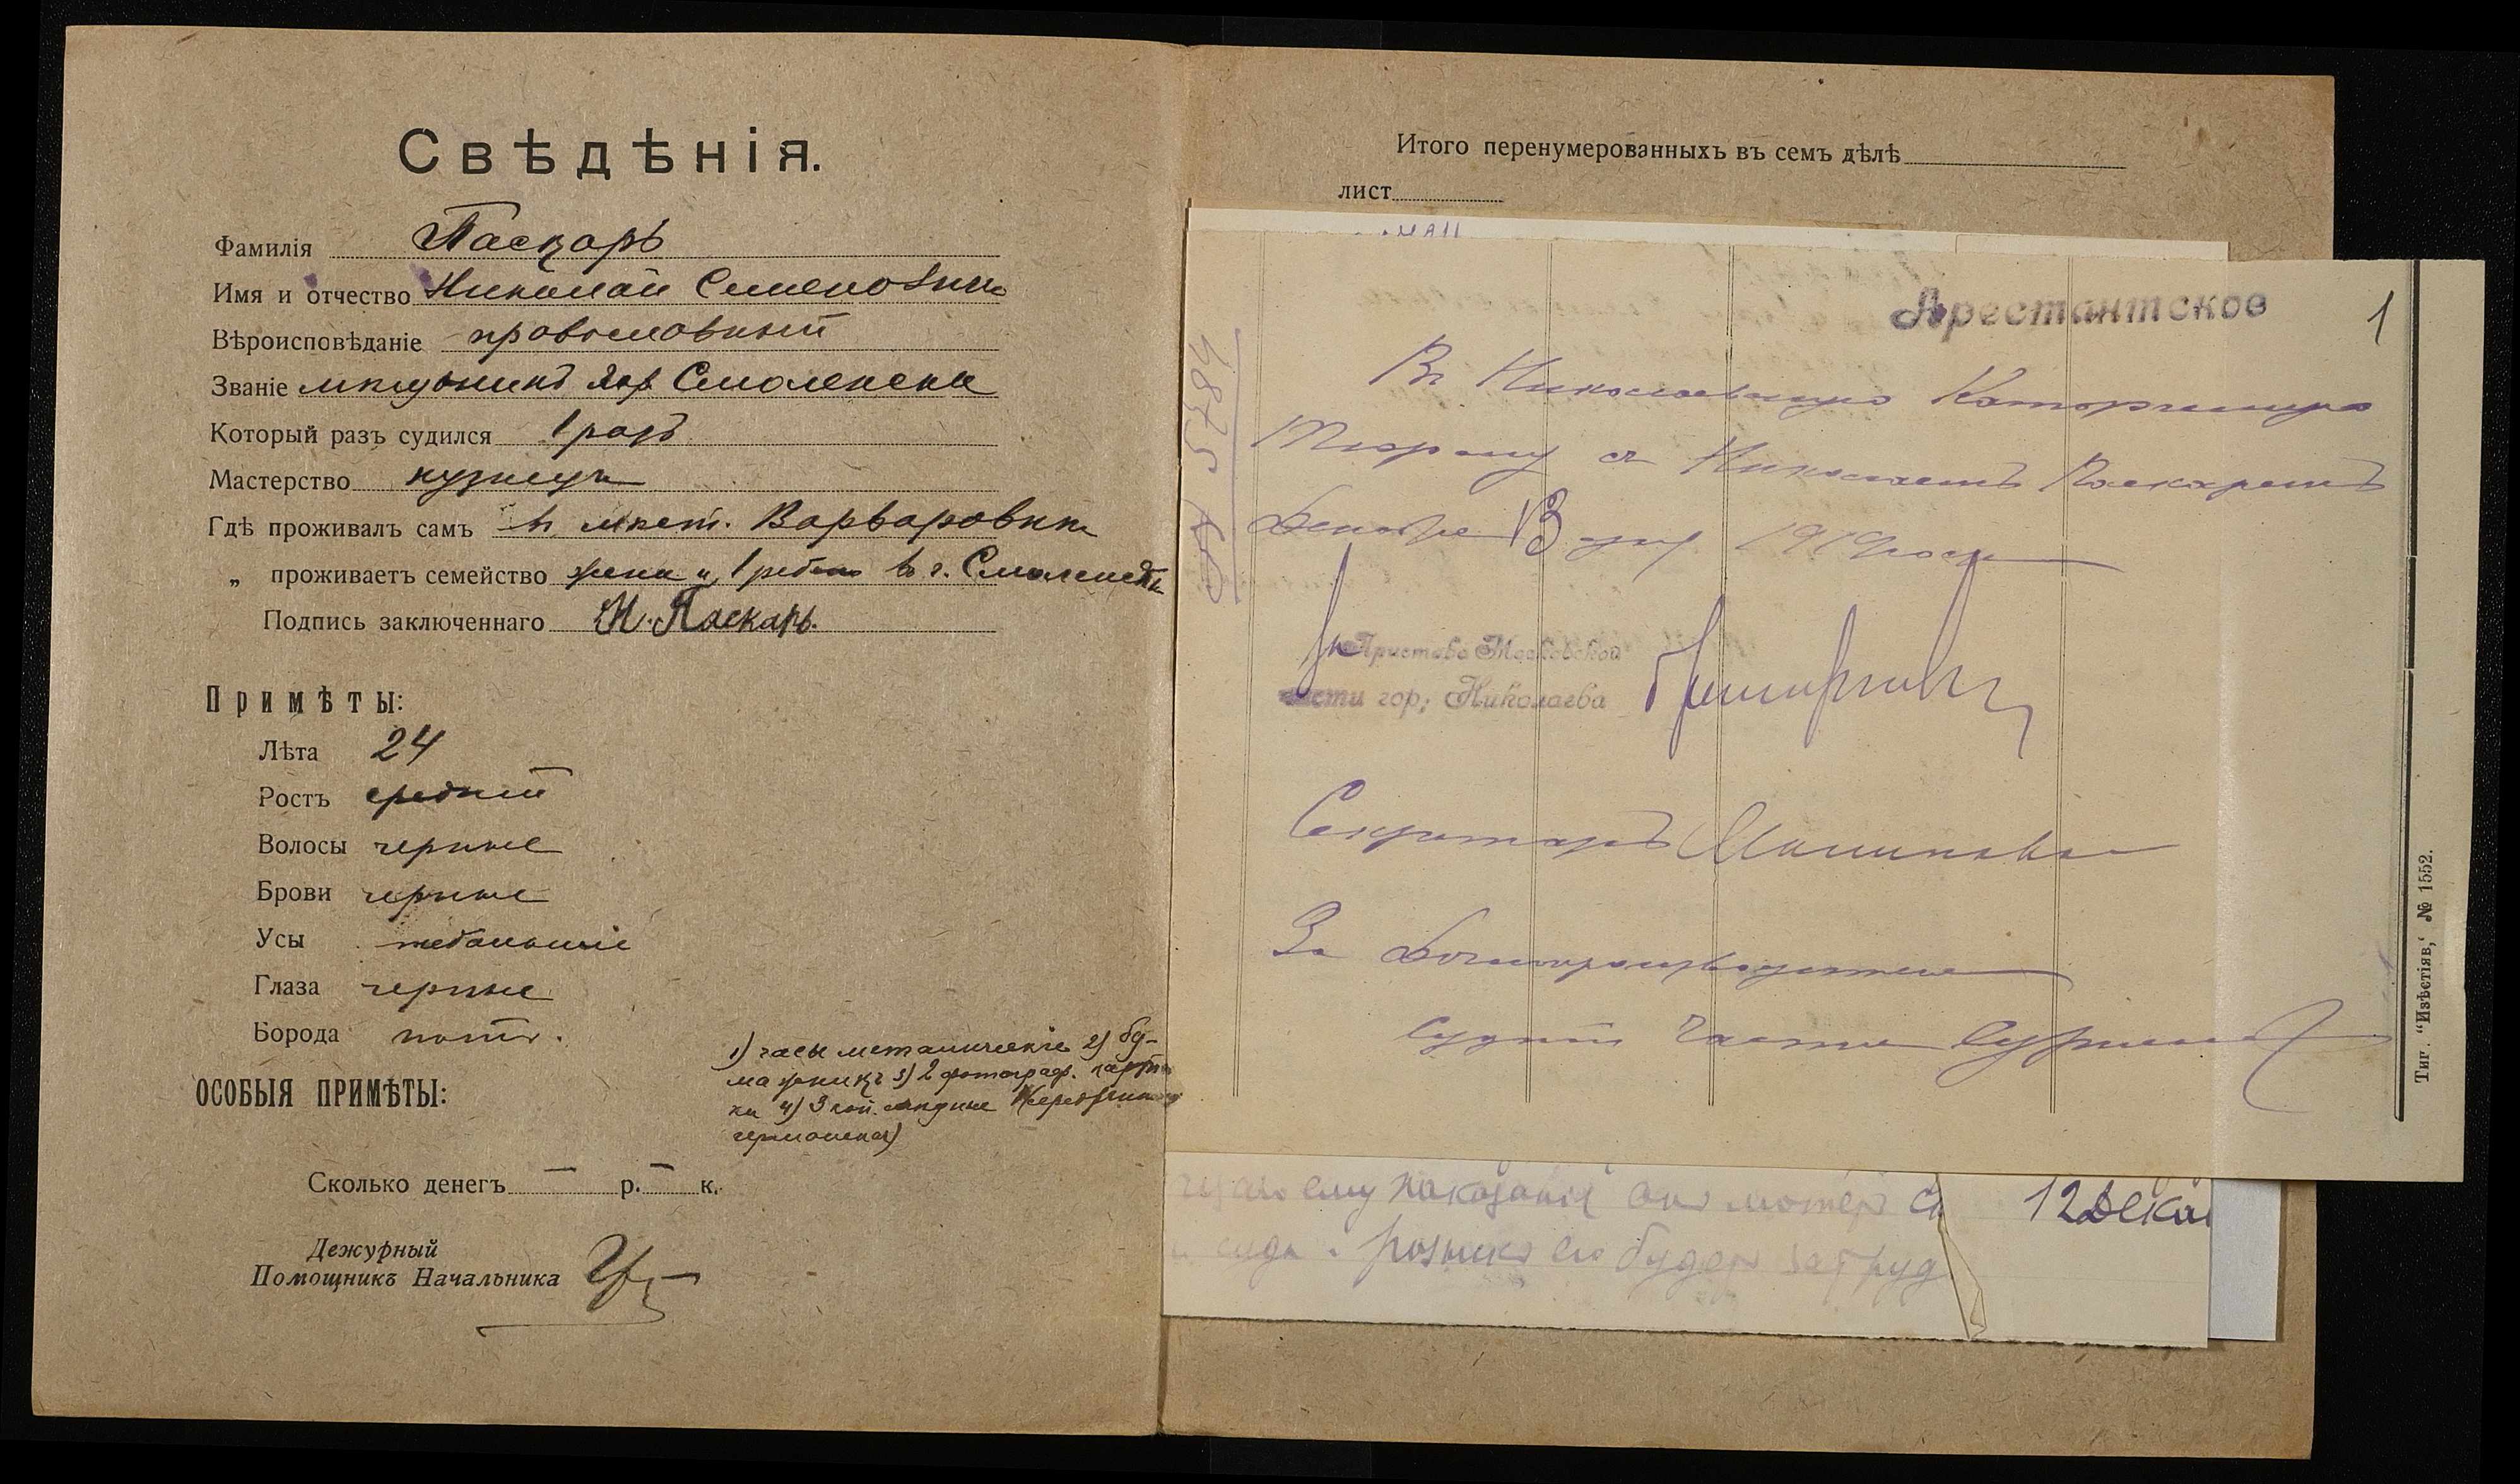 Свѣдѣнія.
Фамилія Паскарь
Имя и отчество Николай Семеновичъ
Вѣроисповѣданіе православный
Званіе мѣщанинъ гор. Смоленска
Который разъ судился 1 разъ
Мастерство кузнецъ
Гдѣ проживалъ самъ въ мѣст. Варваровкѣ
„ проживаетъ семейство жена и 1 ребен. въ г. Смоленскѣ
Подпись заключеннаго Н. Паскарь.
Примѣты:
Лѣта 24
Ростъ средній
Волосы черные
Брови черные
Усы небольшіе
Глаза черные
Борода нѣтъ.
ОСОБЫЯ ПРИМѢТЫ:
1) часы металическіе 2) бу-
мажникъ 3) 2 фотограф. карточ
ки 4) 3 коп. мѣдные
германская)
Сколько денегъ — р. — к.
Дежурный
Помощникъ Начальника
Итого перенумерованныхъ въ семъ дѣлѣ
лист
Арестантское
1
Въ Николаевскую Каторжную
Тюрьму съ Николаемъ Паскаремъ
Декабря 13 дня 1919 года
Пристава Московской
части гор. Николаева
Секретарь
За Дѣлопроизводителя
Судной части
ему наказанія онъ можетъ
12 Дека
розыскъ его будетъ затруд
Тип. "Извѣстіяв," № 1552.